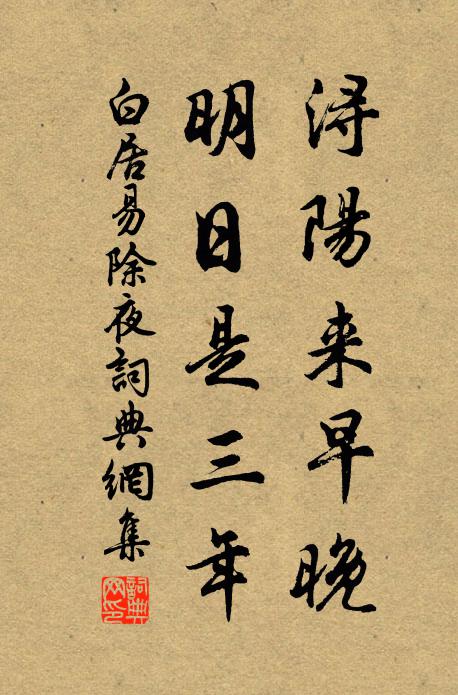 浔陽来早晚
明日是三年
白居易除夜詞典網集
詞典網印